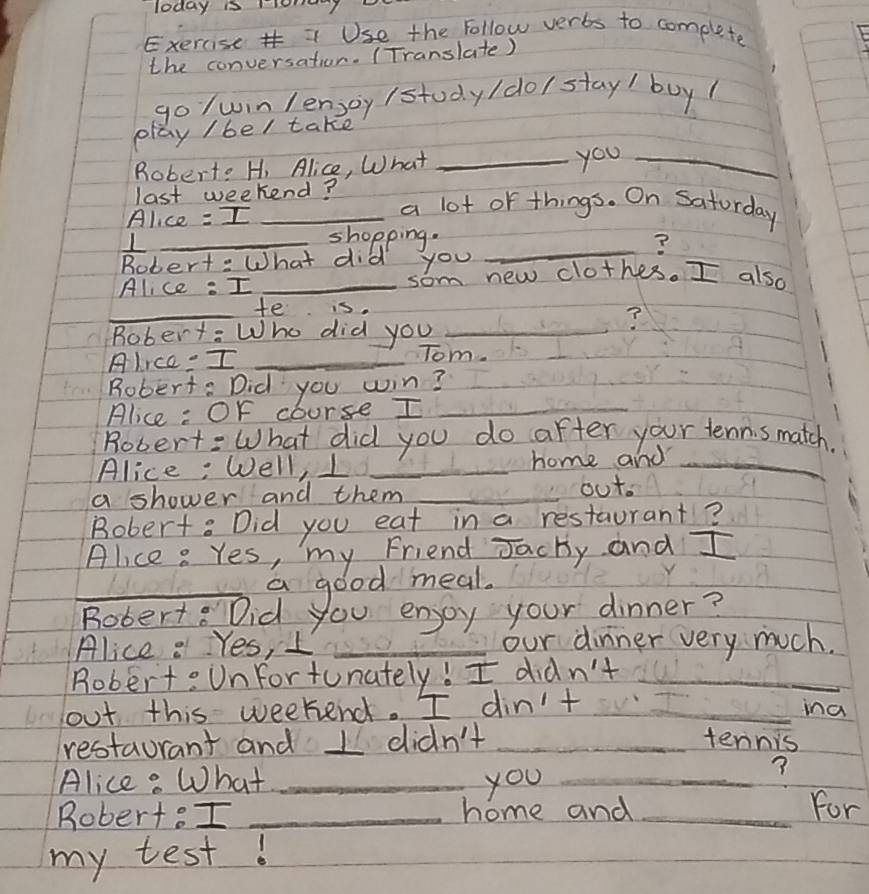 Today is Monday
Exercise # 1 Use the Follow verbs to complete
the conversation. (Translate)
go / win / enjoy / study / do / stay / buy /
play / be / take
Robert: Hi Alice, What ________ you ________
last weekend?
Alice: I ________ a lot of things. On Saturday
I ________ shopping.
Robert: What did you ________ ?
Alice: I ________ som new clothes. I also
________ te is.
Robert: Who did you ________ ?
Alice: I ________ Tom.
Robert: Did you win?
Alice: OF course I ________
Robert: What did you do after your tennis match.
Alice: Well, I ________ home and ________
a shower and them ________ out.
Robert: Did you eat in a restaurant?
Alice: Yes, my Friend Jacky and I
________ a good meal.
Robert: Did you enjoy your dinner?
Alice: Yes, I ________ our dinner very much.
Robert: Unfortunately! I didn't ________
out this weekend. I din't ________ in a
restaurant and I didn't ________ tennis
Alice: What ________ you ________ ?
Robert: I ________ home and ________ For
my test !